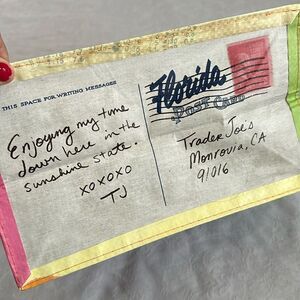 THIS SPACE FOR WRITING MESSAGES
Enjoying my time
down here in the
sunshine state.
XOXOXO
TJ
Florida
POST CARD
Trader Joe's
Monrovia, CA
91016